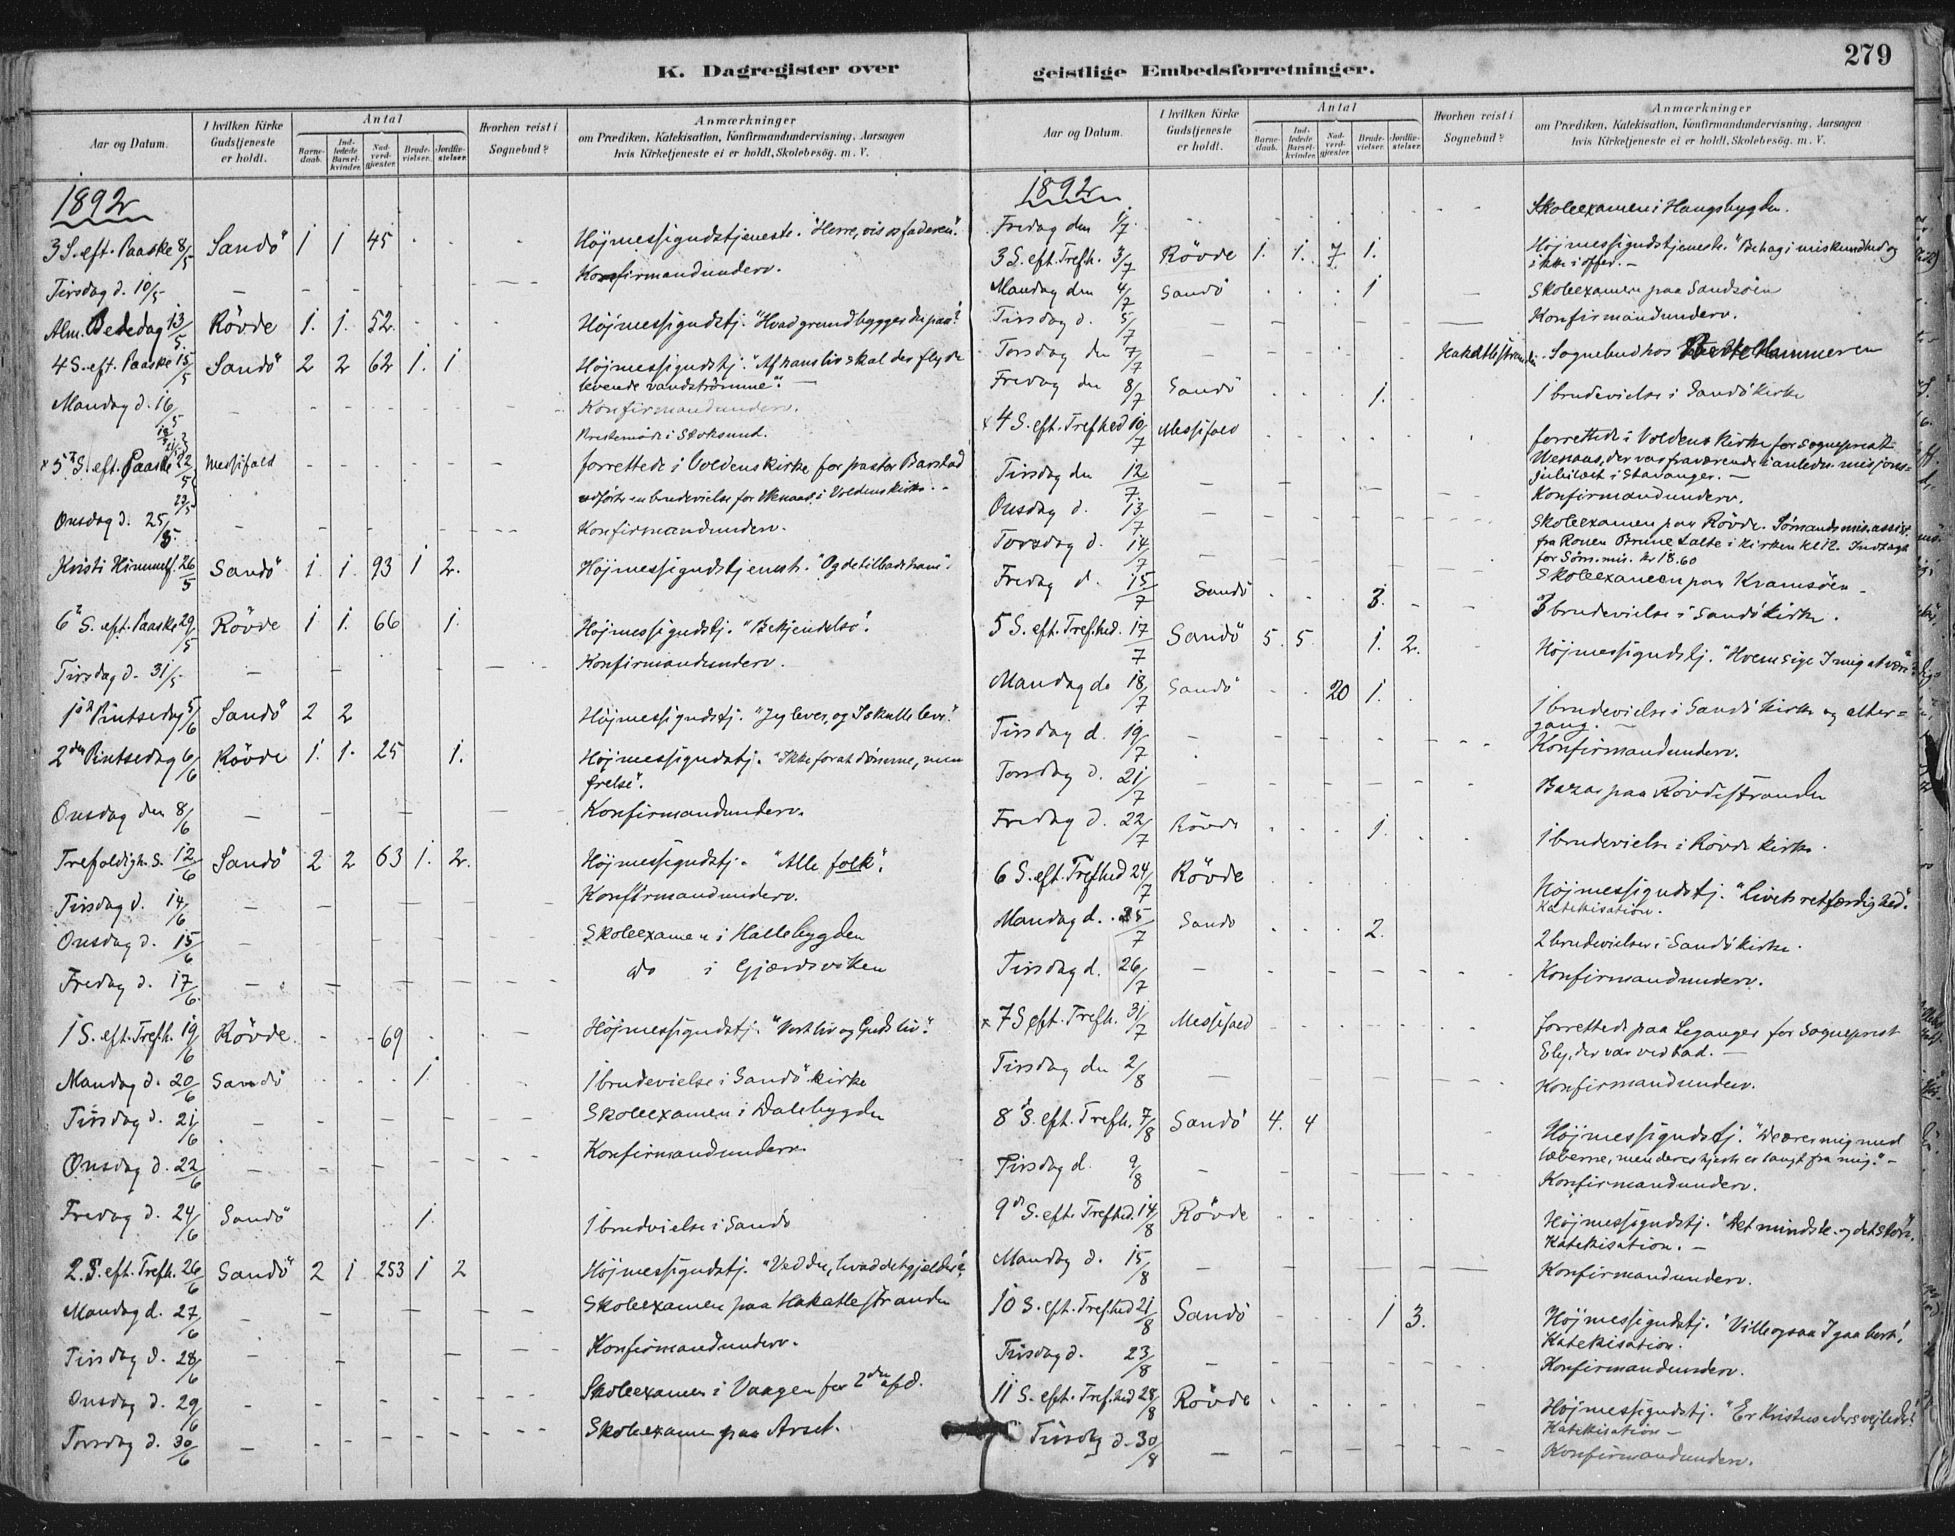 279
K. Dagregister over
Aar og Datum.
I hvilken Kirke Gudstjeneste er holdt.
Antal
Barnedaab.
Indledede Barselkvinder.
Nadverdgjæster.
Brudevielser.
Jordfæstelser.
Hvorhen reist i Sognebud?
Anmærkninger
om Prædiken, Katekisation, Konfirmandundervisning, Aarsagen
hvis Kirketjeneste ei er holdt, Skolebesøg. m. V.
1892
3 S. eft. Paaske 8/5 Sandö 1 1 45 Højmessigudstjeneste. "Herre, vis os faderen".
Tirsdag d. 10/5 Konfirmandunderv.
Alm. Bededag 13/5 Rövde 1. 1. 52 Højmessigudstj. "Hvad grund bygges du paa?
4 S. eft. Paaske 15/5 Sandö 2 2 62 1. 1 Højmessigudstj. "Af hans liv skal der flyde
levende vandstrømme".
Mandag d. 16/5 Konfirmandunderv.
Prestemøde i Stoksund.
x 5 S. eft. Paaske 22/5 Messifald forrettede i Voldens kirke for pastor Barstad
brudevielse for i Voldens kirke.
Onsdag d. 25/5 Konfirmandunderv.
Kristi Himmelf. 26/5 Sandö 1. 1. 93 1 2. Højmessigudstjenest. "Og de tilbad ham".
6 S. eft. Paaske 29/5 Rövde 1 1. 66 1. Højmessigudstj. "Bekjendelse".
Tirsdag d. 31/5 Konfirmandunderv.
1ste Pintsedag 5/6 Sandö 2 2 Højmessigudstj. "Jeg lever, og I skulle leve".
2den Pintsedag 6/6 Rövde 1. 1. 25 1. Højmessigudstj. "Ikke forat dömme, men
frelse".
Onsdag den 8/6 Konfirmandunderv.
Trefoldigh. S. 12/6 Sandö 2 2 63 1. 2. Højmessigudstj. "Alle folk".
Tirsdag d. 14/6 Konfirmandunderv.
Onsdag d. 15/6 Skoleexamen i Hallebygden
Fredag d. 17/6 do i Gjærdsviken
1 S. eft. Trefh. 19/6 Rövde. 69 Højmessigudstj. "Vort liv og Guds liv".
Mandag d. 20/6 Sandö 1. 1 brudevielse i Sandö kirke
Tirsdag d. 21/6 Skoleexamen i Dalebygden
Onsdag d. 22/6 Konfirmandunderv.
Fredag d. 24/6 Sandö 1. 1 brudevielse i Sandö
2. S. eft. Trefh. 26/6 Sandö 2 1 253 1 2 Højmessigudstj. "Ved du, hvad det gjælder?"
Mandag d. 27/6 Skoleexamen paa Hakallestranden
Tirsdag d. 28/6 Konfirmandunderv.
Onsdag d. 29/6 Skoleexamen i Vaagen for 2den afd.
Torsdag d. 30/6 Skoleexamen paa Arset.
geistlige Embedsforretninger.
Aar og Datum.
I hvilken Kirke Gudstjeneste er holdt.
Antal
Barnedaab.
Indledede Barselkvinder.
Nadverdgjæster.
Brudevielser.
Jordfæstelser.
Hvorhen reist i Sognebud?
Anmærkninger
om Prædiken, Katekisation, Konfirmandundervisning, Aarsagen
hvis Kirketjeneste ei er holdt, Skolebesög. m. V.
1892
Fredag den 1/7 Skoleexamen i Haugsbygden.
3 S. eft. Trefh. 3/7 Rövde 1. 1. 7 1. Højmessigudstjeneste. "Behag i miskundhed og
ikke i offer.
Mandag den 4/7 Sandö 1 Skoleexamen paa Sandsöen
Tirsdag d. 5/7 Konfirmandunderv.
Torsdag den 7/7 Hakallestranden Sognebud hos Hammeren
Fredag den 8/7 Sandö 1. 1 brudevielse i Sandö kirke
x 4 S. eft. Trefhed 10/7 Messifald forrettede i Voldens kirke for sogneprest
Wenaas, der var fraværende i anledn. misjons=
jubilæet i Stavanger.
Tirsdag den 12/7 Konfirmandunderv.
Onsdag d. 13/7 Skoleexamen paa Rövde. Sömandsmis.assist.
fra Rouen Brune talte i kirken kl 12. Indsagt
for Söm. mis. kr 18.60
Torsdag d. 14/7 Skoleexamen paa Kvamsöen
Fredag d. 15/7 Sandö 3. 3 brudevielse i Sandö kirke.
5 S. eft. Trefhed. 17/7 Sandö 5. 5 1. 2. Højmessigudstj. "Hvem sige I mig at være?
Mandag d. 18/7 Sandö 20 1. 1 brudevielse i Sandö kirke og alter=
gang.
Tirsdag d. 19/7 Konfirmandunderv.
Torsdag d. 21/7 Bazar paa Rövdestranden
Fredag d. 22/7 Rövde 1. 1 brudevielse i Rövde kirke.
6 S. eft. Trefhed 24/7 Rövde Højmessigudstj. "Livets retfærdighed".
Katekisation.
Mandag d. 25/7 Sandö 2. 2 brudevielser i Sandö kirke.
Tirsdag d. 26/7 Konfirmandunderv.
x 7 S eft. Trefh. 31/7 Messifald forrettede paa Leganger for sogneprest
Ely, der var ved bad.
Tirsdag den 2/8 Konfirmandunderv.
8 S. eft. Trefh. 7/8 Sandö 4. 4 Højmessigudstj. "De æres mig med
læberne, men deres hjerte er langt fra mig".
Tirsdag d. 9/8 Konfirmandunderv.
9 S. eft. Trefhed. 14/8 Rövde Højmessigudstj. "Det mindste og det store".
Katekisation.
Mandag d. 15/8 Konfirmandunderv.
10 S. eft. Trefhed 21/8 Sandö 1 3. Højmessigudstj. "Ville ogsaa I gaa bort?
Katekisation.
Tirsdag d. 23/8 Konfirmandunderv.
11 S. eft. Trefhed 28/8 Rövde Højmessigudstj. "Er Kristus eders vejleder?
Katekisation
Tirsdag d. 30/8 Konfirmandunderv.